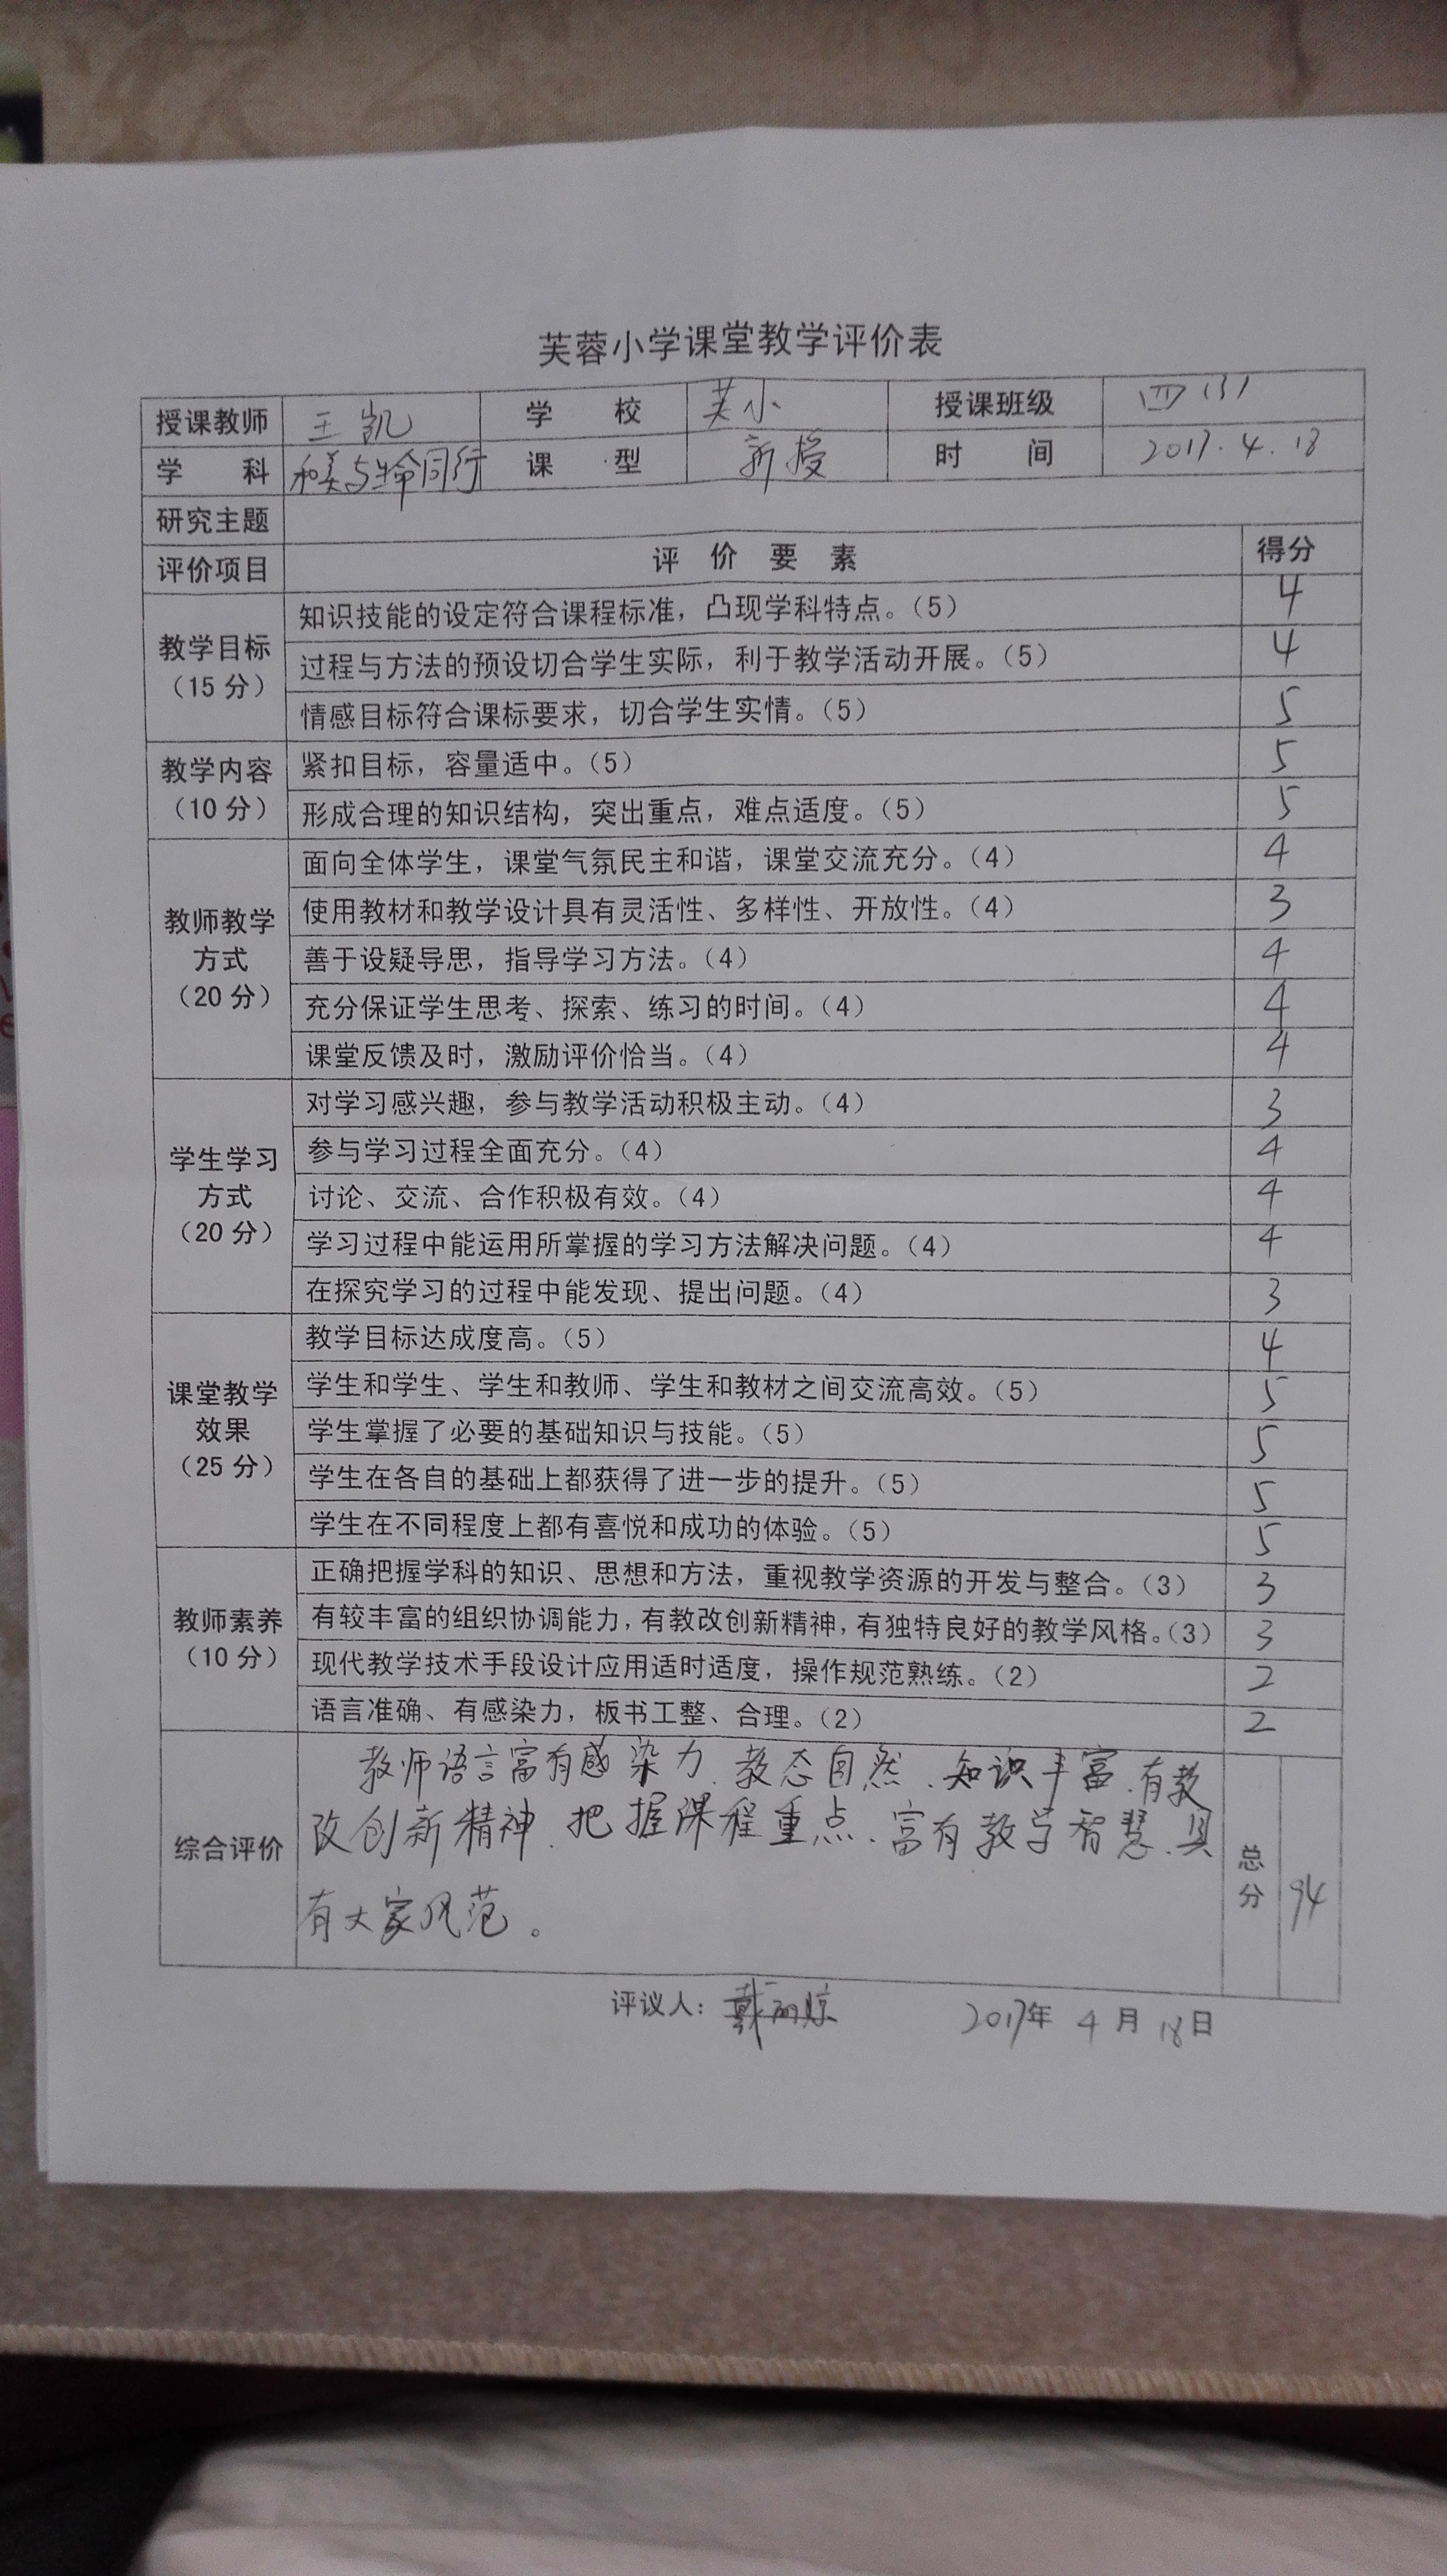 芙蓉小学课堂教学评价表
授课教师 王凯 学 校 芙小 授课班级 四(3)
学 科 和美与生命同行 课 型 新授 时 间 2017.4.18
研究主题
评价项目 评 价 要 素 得分
教学目标（15分） 知识技能的设定符合课程标准，凸现学科特点。（5） 4
过程与方法的预设切合学生实际，利于教学活动开展。（5） 4
情感目标符合课标要求，切合学生实情。（5） 5
教学内容（10分） 紧扣目标，容量适中。（5） 5
形成合理的知识结构，突出重点，难点适度。（5） 5
教师教学方式（20分） 面向全体学生，课堂气氛民主和谐，课堂交流充分。（4） 4
使用教材和教学设计具有灵活性、多样性、开放性。（4） 3
善于设疑导思，指导学习方法。（4） 4
充分保证学生思考、探索、练习的时间。（4） 4
课堂反馈及时，激励评价恰当。（4） 4
学生学习方式（20分） 对学习感兴趣，参与教学活动积极主动。（4） 3
参与学习过程全面充分。（4） 4
讨论、交流、合作积极有效。（4） 4
学习过程中能运用所掌握的学习方法解决问题。（4） 4
在探究学习的过程中能发现、提出问题。（4） 3
课堂教学效果（25分） 教学目标达成度高。（5） 4
学生和学生、学生和教师、学生和教材之间交流高效。（5） 5
学生掌握了必要的基础知识与技能。（5） 5
学生在各自的基础上都获得了进一步的提升。（5） 5
学生在不同程度上都有喜悦和成功的体验。（5） 5
教师素养（10分） 正确把握学科的知识、思想和方法，重视教学资源的开发与整合。（3） 3
有较丰富的组织协调能力，有教改创新精神，有独特良好的教学风格。（3） 3
现代教学技术手段设计应用适时适度，操作规范熟练。（2） 2
语言准确、有感染力，板书工整、合理。（2） 2
综合评价 教师语言富有感染力、教态自然、知识丰富、有教
改创新精神、把握课程重点、富有教学智慧、具
有大家风范。
总分 94
评议人： 戴丽琼 2017年 4 月 18 日